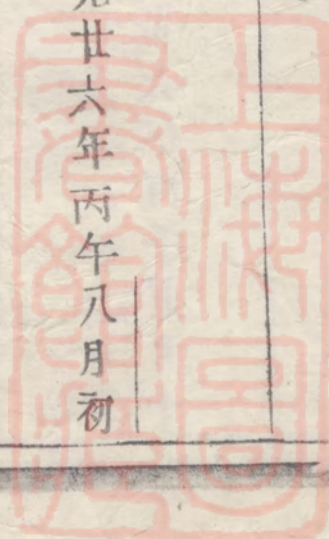 光廿六年丙午八月初
上海圖
書館藏